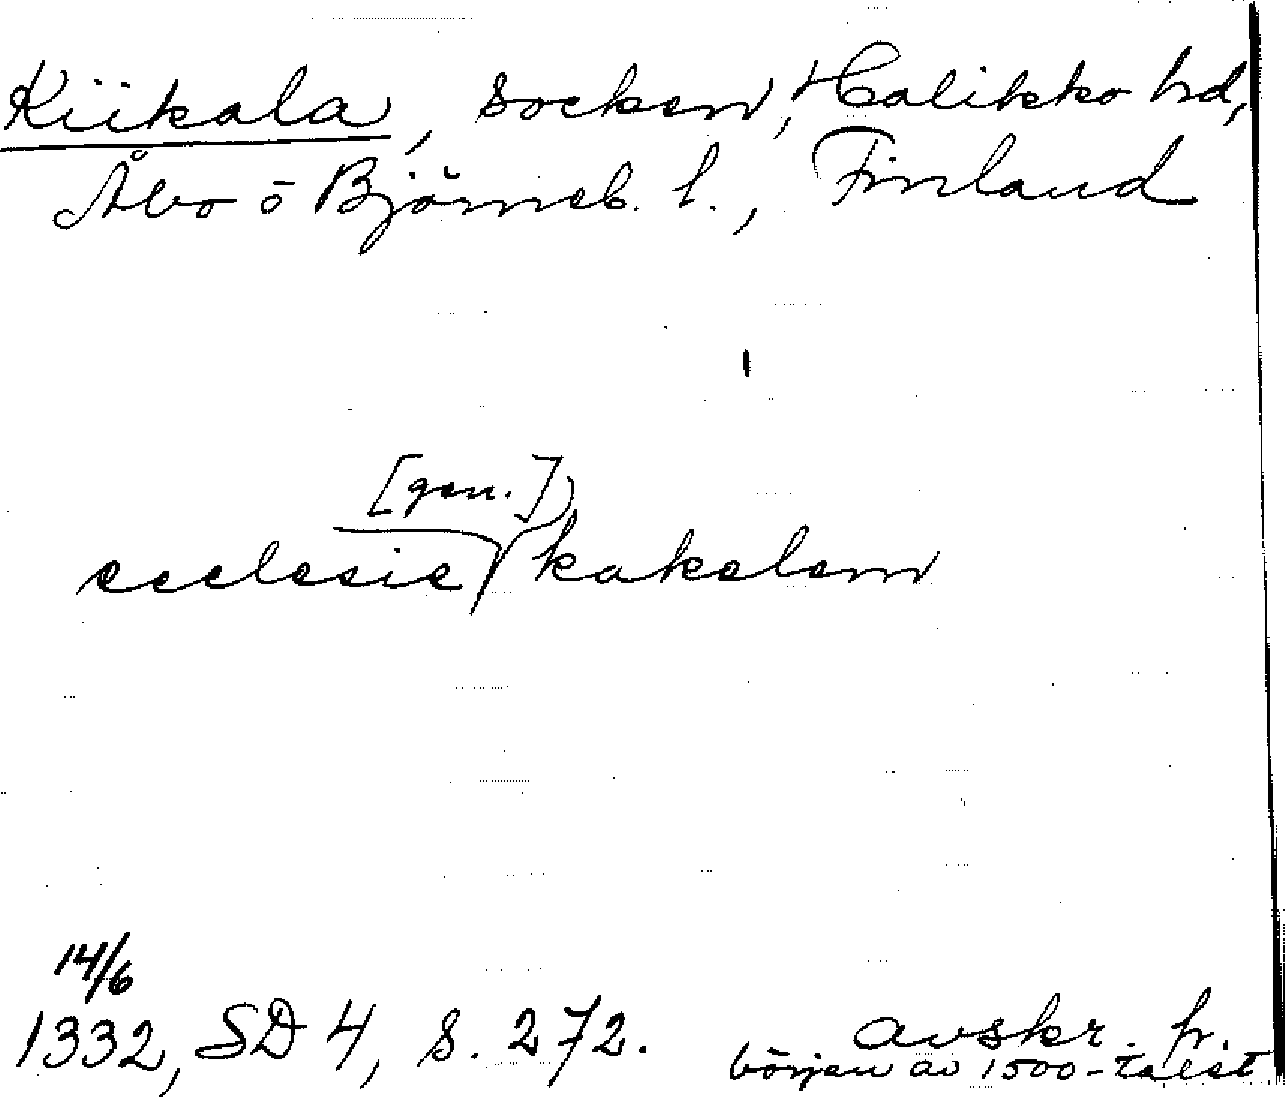 Kiikala, socken, Halikko hd,
Åbo o Björneb. l., Finland
[gen.]
ecclesie kakelem
14/6
1332, SD 4, s. 272.
avskr. fr.
början av 1500-talet